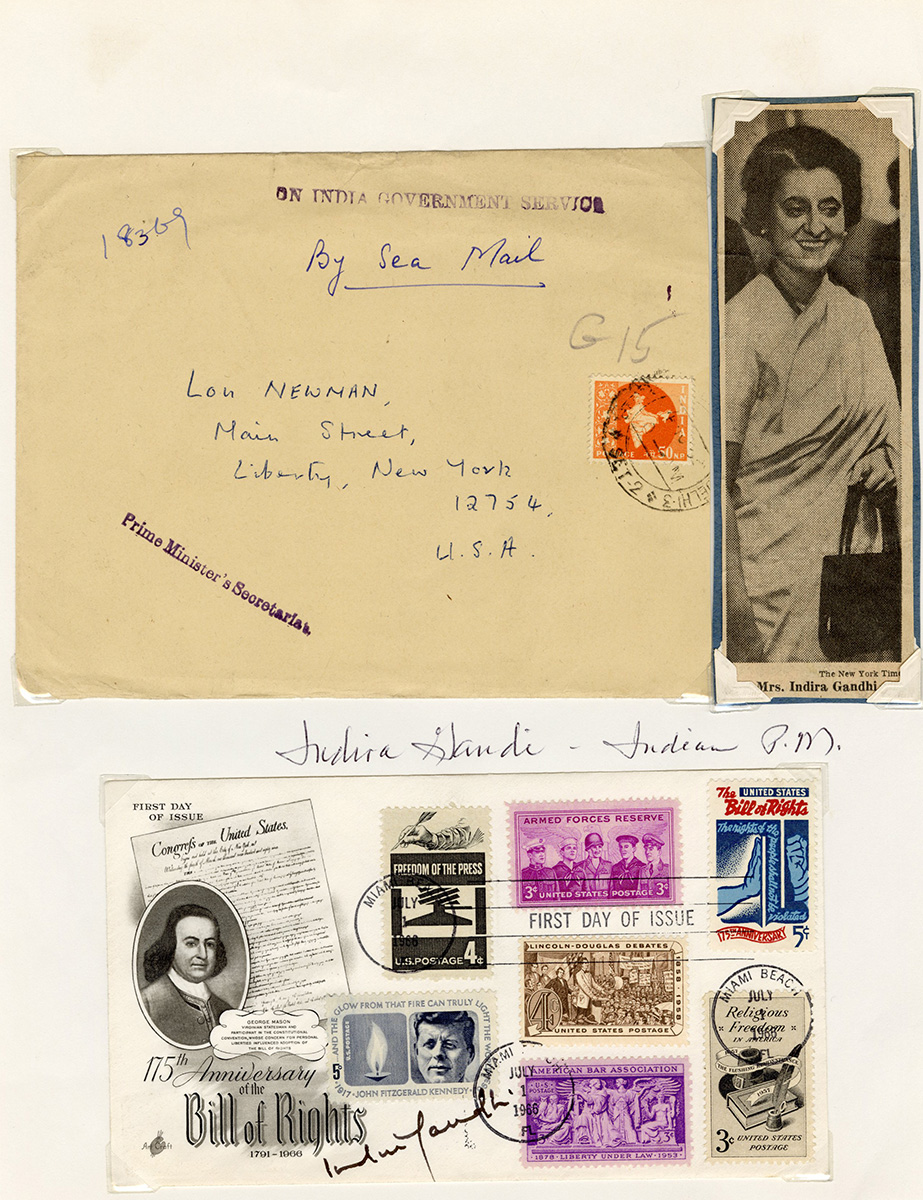 ON INDIA GOVERNMENT SERVICE
18369
By Sea Mail
G 15
Lou NEWMAN,
Main Street,
Liberty, New York
12754,
U.S.A.
INDIA
POSTAGE
50 NP.
DELHI-3
Prime Minister's Secretariat.
The New York Tim
Mrs. Indira Gandhi
Indira Gandi - Indian P.M.
FIRST DAY
OF ISSUE
Congress OF THE United States,
GEORGE MASON
VIRGINIAN STATESMAN AND
PARTICIPANT IN THE CONSTITUTIONAL
CONVENTION, WHOSE CONCERN FOR PERSONAL
LIBERTIES INFLUENCED ADOPTION OF
THE BILL OF RIGHTS
175th Anniversary
of the
Bill of Rights
1791-1966
Art Craft
FREEDOM OF THE PRESS
U.S. POSTAGE 4¢
MIAMI
JULY
1
1966
ARMED FORCES RESERVE
3¢ UNITED STATES POSTAGE 3¢
FIRST DAY OF ISSUE
The UNITED STATES
Bill of Rights
The rights of the
people shall not be
violated
175th ANNIVERSARY
5¢
LINCOLN-DOUGLAS DEBATES
1858 1958
4¢
UNITED STATES POSTAGE
AND THE GLOW FROM THAT FIRE CAN TRULY LIGHT THE
U.S. POSTAGE
5¢
1917 · JOHN FITZGERALD KENNEDY
Indira Gandhi
MIAMI
JULY
1
1966
FL
AMERICAN BAR ASSOCIATION
U·S·
POSTAGE
3¢ 3¢
1878 - LIBERTY UNDER LAW - 1953
MIAMI BEACH
JULY
FL
Religious
Freedom
IN AMERICA
THE FLUSHING REMONSTRANCE
1957
3¢ UNITED STATES
POSTAGE